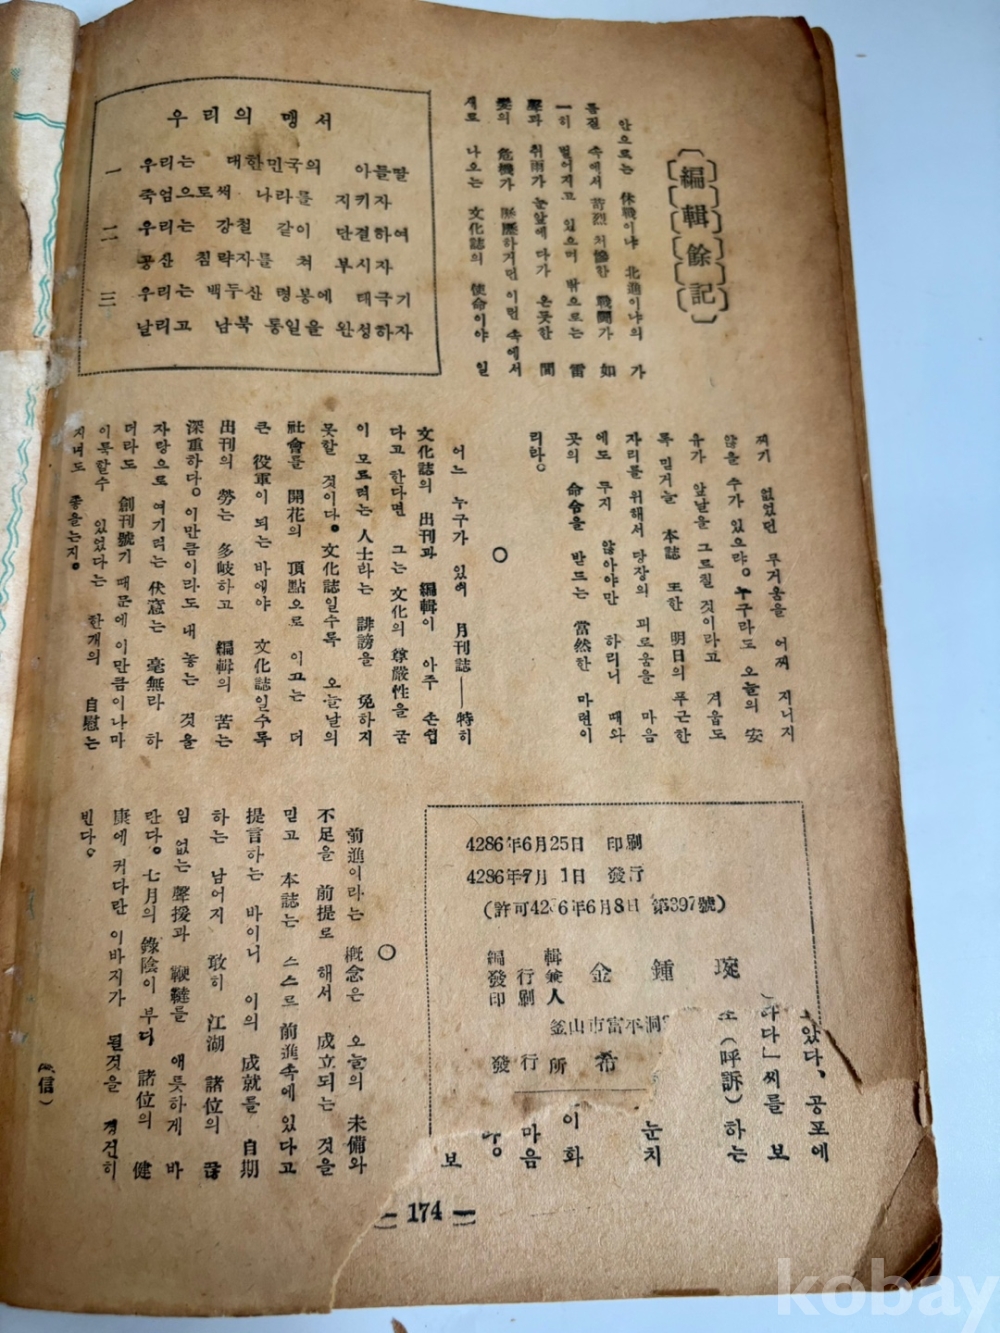 編輯餘記
안으로는 休戰이냐 北進이냐의 가
틈질 속에서 苛烈 처慘한 戰鬪가 如
一히 벌어지고 있으며 밖으로는 雷
聲과 취雨가 눈앞에 다가 온듯한 閒
의 危機가 歷歷하거던 이런 속에서
새로 나오는 文化誌의 使命이야 일
우리의 맹서
一 우리는 대한민국의 아들딸
죽엄으로써 나라를 지키자
二 우리는 강철 같이 단결하여
공산 침략자를 쳐 부시자
三 우리는 백두산 령봉에 태극기
날리고 남북 통일을 완성하자
찌기 없었던 무거움을 어찌 지니지
않을 수가 있으랴。누구라도 오늘의 安
유가 앞날을 그르칠 것이라고 겨웁도
록 믿거늘 本誌 또한 明日의 푸근한
자리를 위해서 당장의 괴로움을 마음
에도 두지 않아야만 하리니 때와
곳의 命令을 받드는 當然한 마련이
리라。
○
어느 누구가 있어 月刊誌―特히
文化誌의 出刊과 編輯이 아주 손쉽
다고 한다면 그는 文化의 尊嚴性을 굼
이 모르려는 人士라는 誹謗을 免하지
못할 것이다。文化誌일수록 오늘날의
社會를 開花의 頂點으로 이끄는 더
큰 役軍이 되는 바에야 文化誌일수록
出刊의 勞는 多岐하고 編輯의 苦는
深重하다。이만큼이라도 내 놓는 것을
자랑으로 여기려는 伏意는 毫無라 하
더라도 創刊號기 때문에 이만큼이나마
이룩할수 있었다는 한개의 自慰는
지녀도 좋을는지。
4286年6月25日 印刷
4286年7月1日 發行
(許可42 6年6月8日 第397號)
編輯兼
發行人
印刷
金鍾琬
釜山市富平洞
發行所 希
았다、공포에
다다」씨를 보
(呼訴)하는
눈치
이화
마음
보
○
前進이라는 槪念은 오늘의 未備와
不足을 前提로 해서 成立되는 것을
믿고 本誌는 스스로 前進속에 있다고
提言하는 바이니 이의 成就를 自期
하는 남어지 敢히 江湖 諸位의 끊
임 없는 聲援과 鞭韃를 애틋하게 바
란다。七月의 綠陰이 부디 諸位의 健
康에 커다란 이바지가 될것을 경건히
빈다。
(信)
― 174 ―
kobay